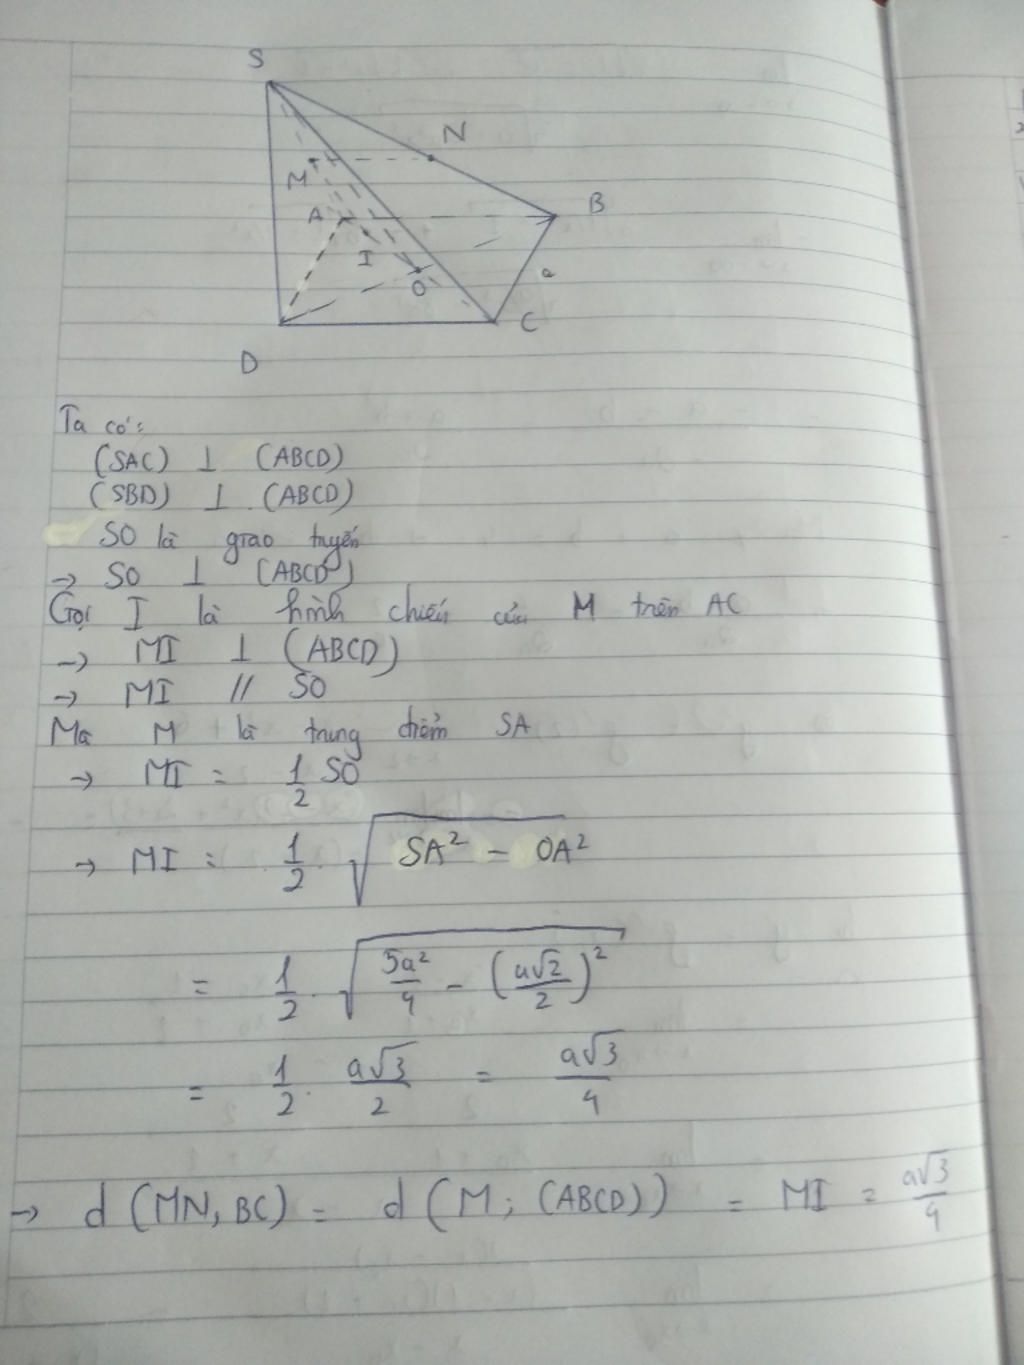 S
N
M
A
B
I
O
a
C
D
Ta có:
(SAC) ⊥ (ABCD)
(SBD) ⊥ (ABCD)
SO là giao tuyến
→ SO ⊥ (ABCD)
Gọi I là hình chiếu của M trên AC
→ MI ⊥ (ABCD)
→ MI // SO
Mà M là trung điểm SA
→ MI = 1/2 SO
→ MI = 1/2 . √(SA² - OA²)
= 1/2 . √(5a²/4 - (a√2/2)²)
= 1/2 . a√3/2 = a√3/4
→ d(MN, BC) = d(M; (ABCD)) = MI = a√3/4